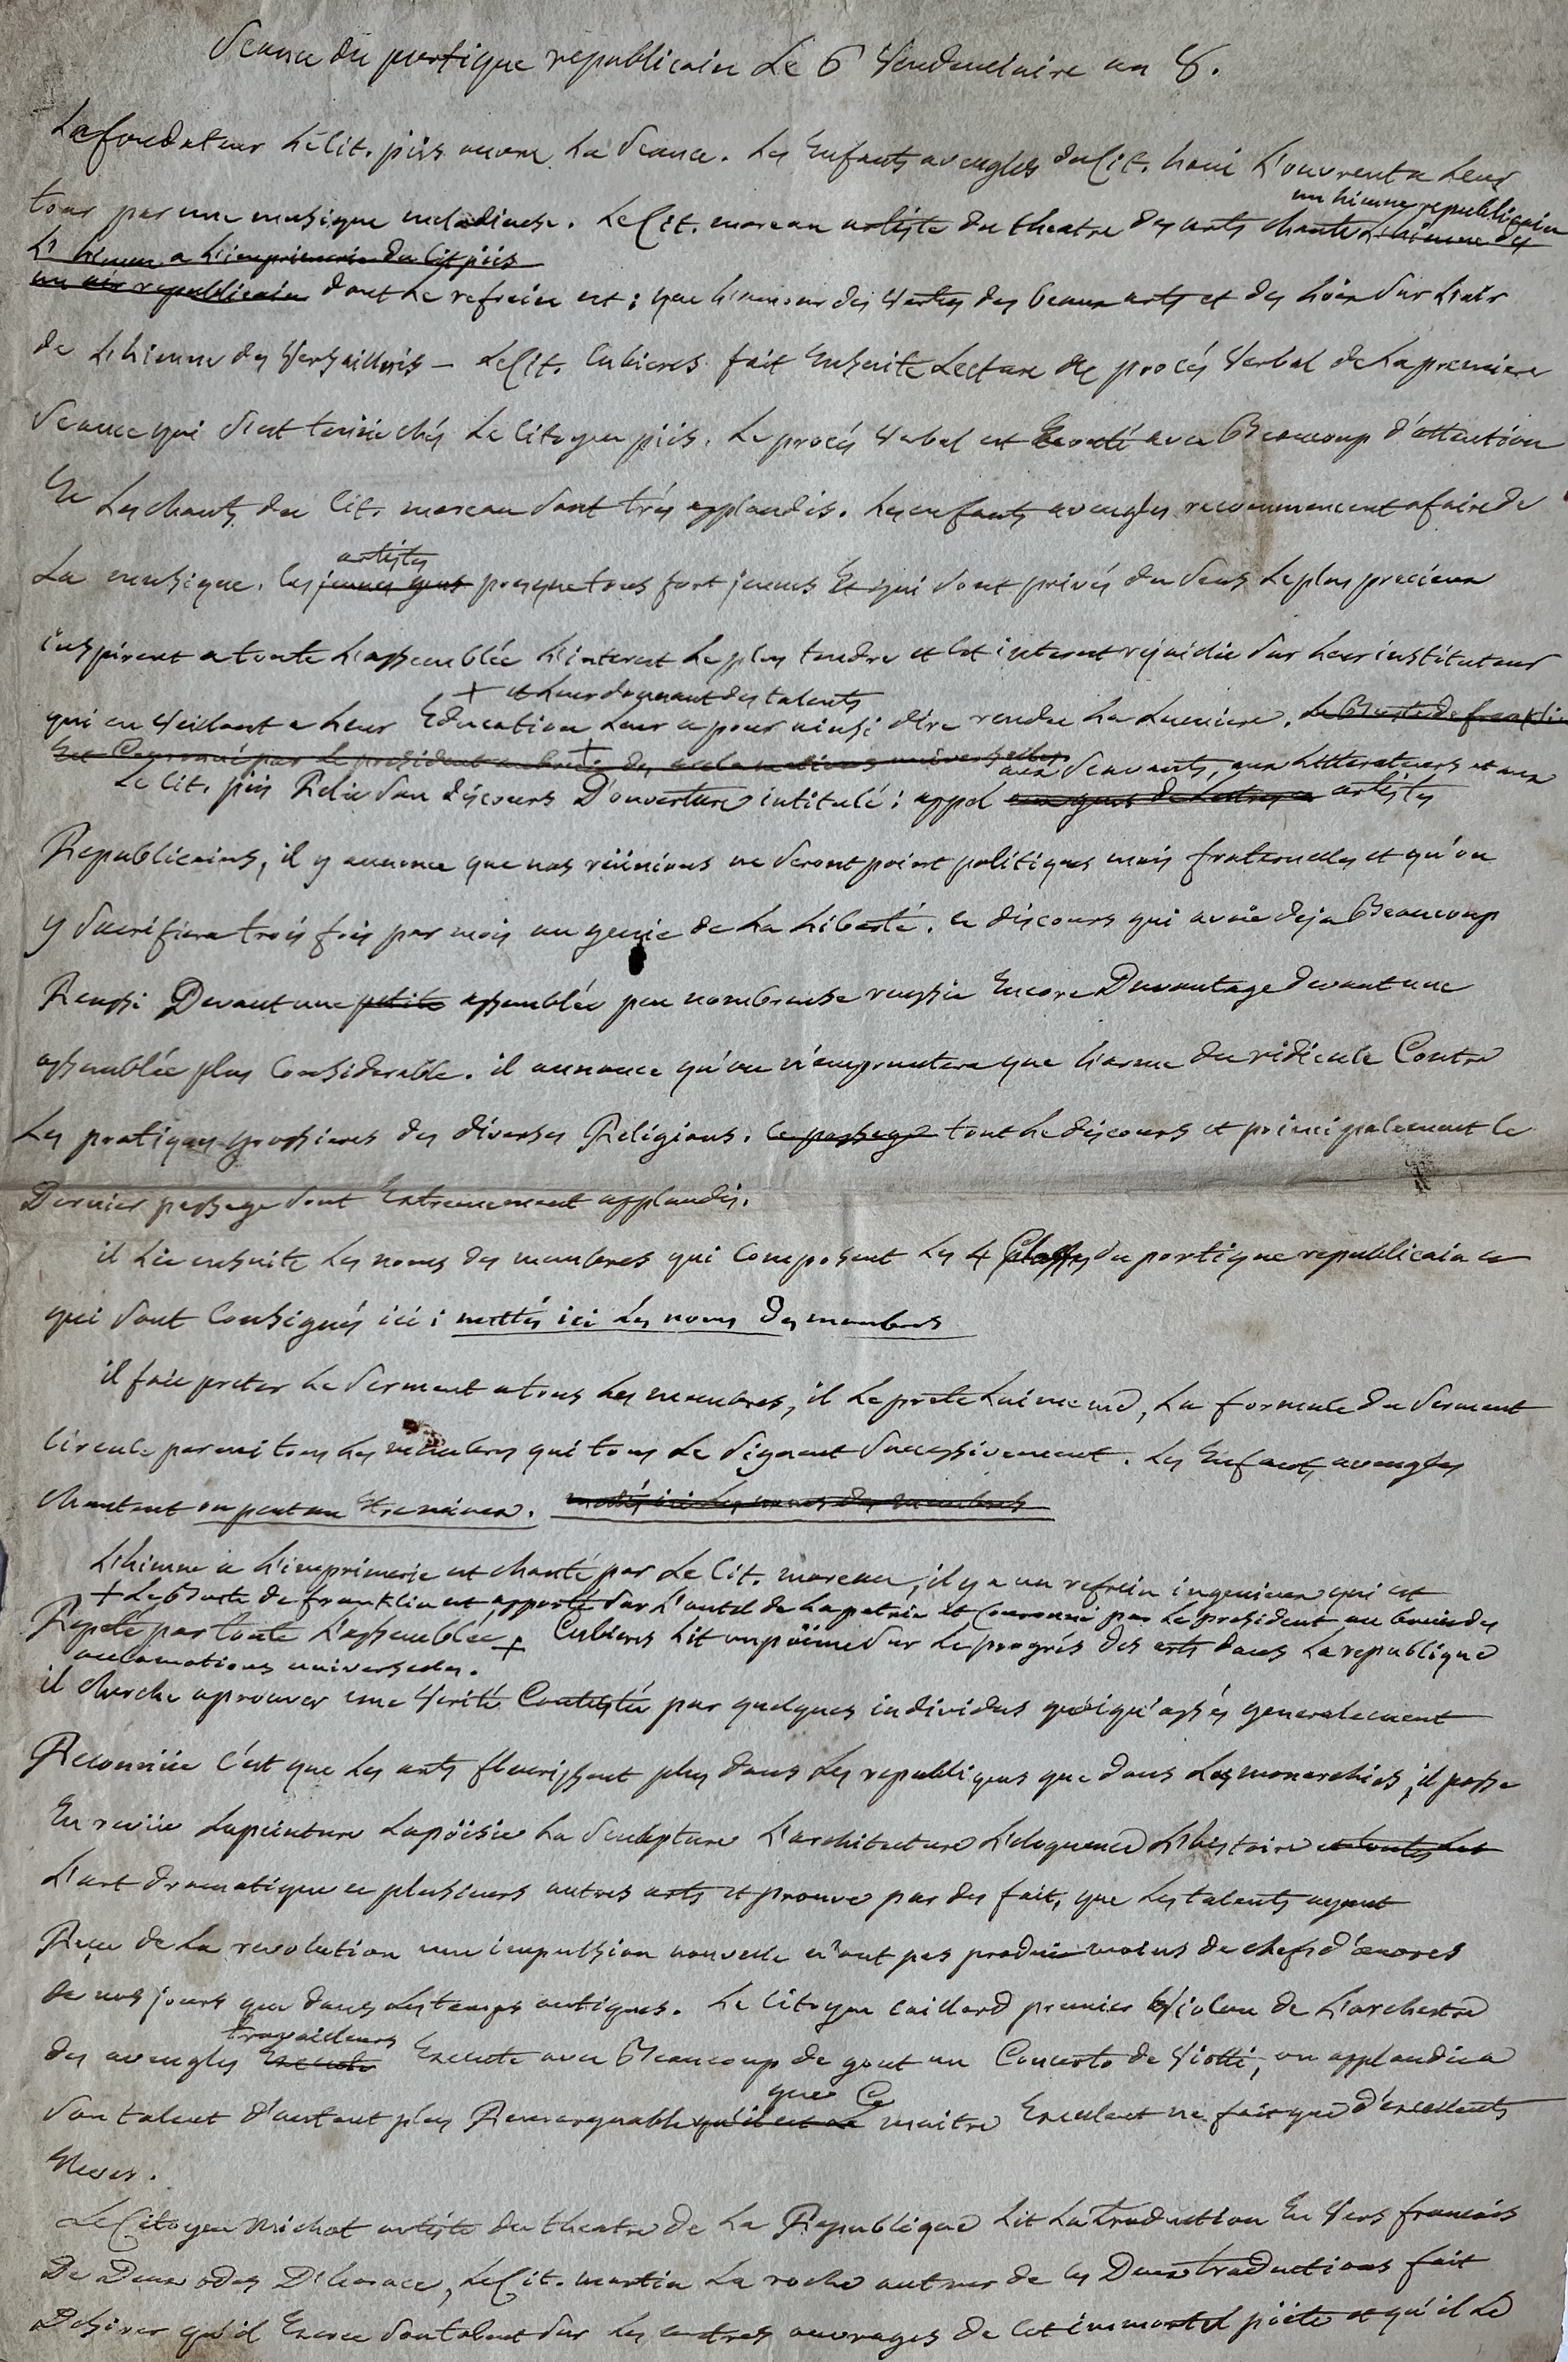 Seance du portique republicain Le 6 Vendemiaire an 8.
Le fondateur Le Cit. piis ouvre La Seance. Les Enfants aveugles du Cit. haui L'ouvrent a Leur
un himne republicain
tour par une musique melodieuse. Le Cit. moreau artiste du theatre des arts chante L'himne des
L'himne a L'imprimerie du Cit piis
un air republicain dont Le refrein est : que L'amour des Vertus des beaux arts et des Loix Sur L'air
de L'himne des Versaillois — Le Cit. Cubieres fait Ensuite Lecture du procés Verbal de La premiere
Seance qui S'est tenüe chés Le Citoyen piis. Le procés Verbal est Ecouté avec Beaucoup d'attention
Et Les chants du Cit. moreau Sont trés applaudis. Les enfants aveugles recommencent a faire de
artistes
La musique. Ces jeunes gens presque tous fort jeunes Et qui Sont privés du Sens Le plus precieux
inspirent a toute L'assemblée L'interest Le plus tendre et Cet interest rejaillit Sur Leur instituteur
+ et Leur donnant des talents
qui en Veillant a Leur Education Leur a pour ainsi dire rendu La Lumiere. Le Buste de franklin
Est Couronné par Le president au bruit des acclamations universelles
aux Scavants, aux Litterateurs et aux
Le Cit. piis Relit Son discours D'ouverture intitulé : appel aux gens de Lettres artistes
Republicains, il y annonce que nos réünions ne Seront point politiques mais fraternelles et qu'on
y Sacrifiera trois fois par mois au genie de La Liberté. Ce discours qui avoit deja Beaucoup
Reussi Devant une petite assemblée peu nombreuse reussit Encore Davantage devant une
assemblée plus Considerable. il annonce qu'on n'empruntera que L'arme du ridicule Contre
Les pratiques grossieres des diverses Religions. Ce passage tout Le discours et principalement Ce
Dernier passage Sont Extremement applaudis.
il Lit ensuite Les noms des membres qui Composent Les 4 Classes du portique republicain et
qui Sont Consignés ici : mettés ici Les noms des membres
il fait preter Le Serment a tous Les membres, il Le prete Lui meme, La formule du Serment
Circule parmi tous Les membres qui tous Le Signent Successivement. Les Enfants aveugles
chantent on peut on Etre mieux. mettés ici Les noms des membres
L'himne a L'imprimerie est chanté par Le Cit. moreau, il y a un refrein ingenieux qui est
+ Le Buste de franklin est apporté Sur L'autel de La patrie et Couronné par Le president au bruit des
Repeté par toute L'assemblée + Cubieres Lit un pöeme Sur Le progrés des arts dans La republique
acclamations universelles.
il cherche a prouver une Verité Contestée par quelques individus quoiqu'assés generalement
Reconnüe C'est que Les arts fleurissent plus dans Les republiques que dans Les monarchies, il passe
En revüe La peinture La pöesie La Sculpture L'architecture L'eloquence L'histoire et toutes Les
L'art dramatique et plusieurs autres arts et prouve par des faits, que Les talents ayant
Reçu de La revolution une impulsion nouvelle n'ont pas produit moins de chefs d'œuvres
de nos jours que dans Les temps antiques. Le Citoyen Caillard premier Violon de L'orchestre
travailleurs
des aveugles Execute Execute avec Beaucoup de gout un Concerto de Viotti, on applaudit a
que Ce
Son talent d'autant plus Remarquable qu'il est Le maitre Excellent ne fait que d'excellents
Eleves.
Le Citoyen Michot artiste du theatre de La Republique Lit La traduction En Vers francais
De Deux odes D'horace, Le Cit. martin La roche auteur de Ces Deux traductions fait
Desirer qu'il Exerce Son talent Sur Les autres ouvrages de Cet immortel pöete et qu'il Le